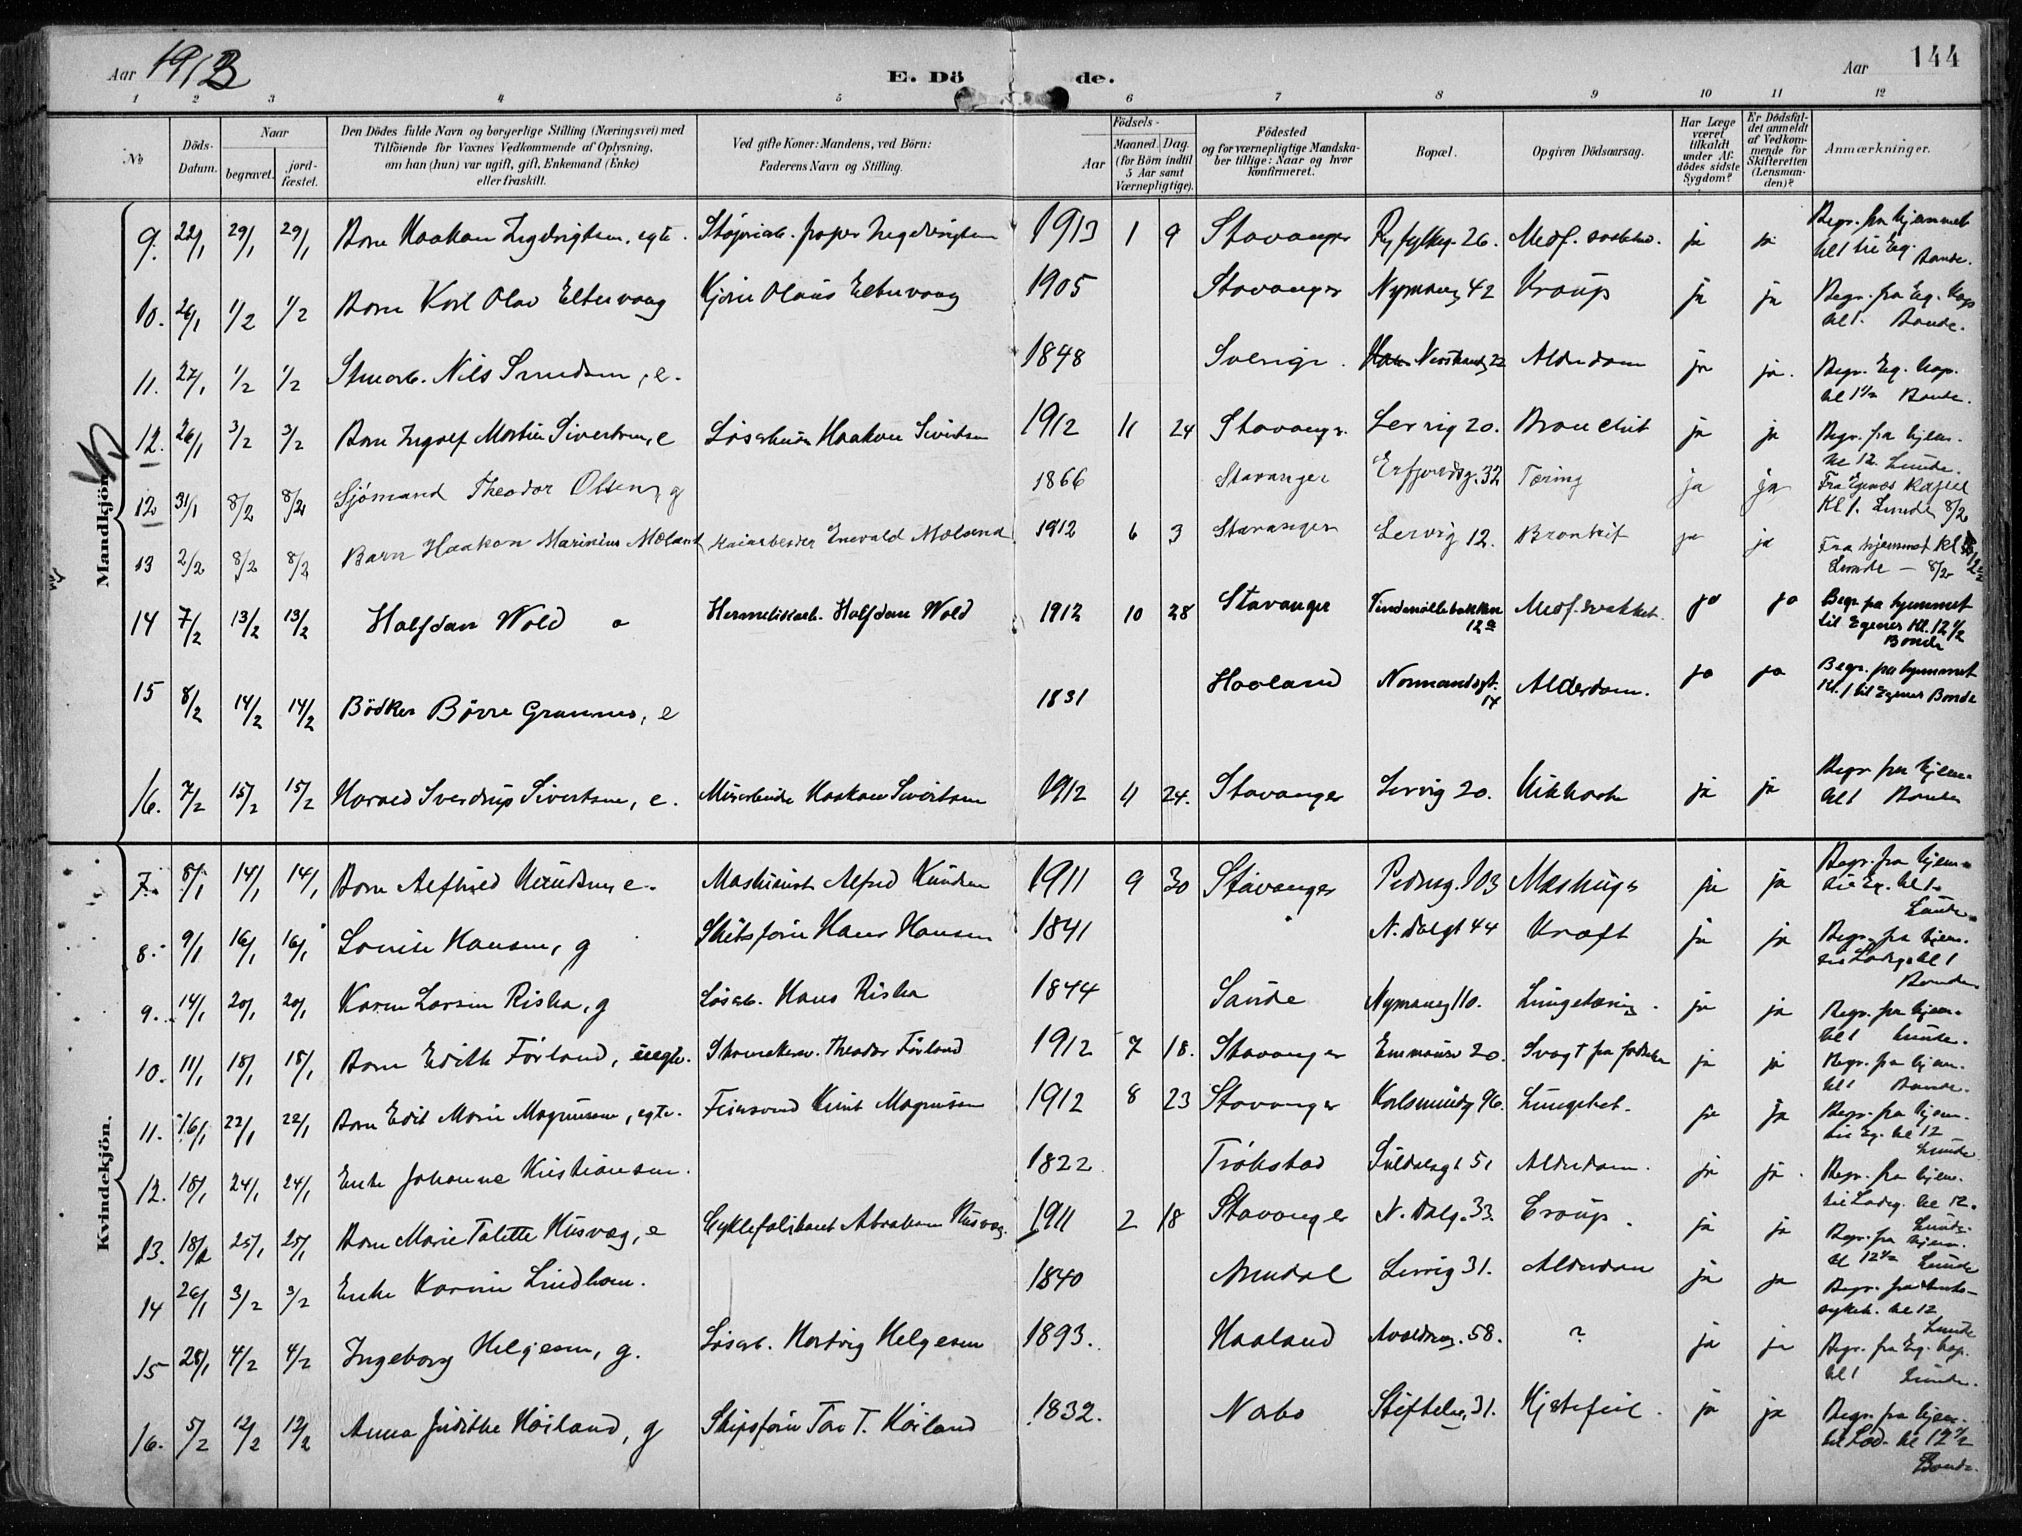 Aar 1913 E. Döde. Aar 144
1 2 3 4 5 6 7 8 9 10 11 12
No
Döds-Datum.
Naar
begravet.
jord-fæstet.
Den Dödes fulde Navn og borgerlige Stilling (Næringsvei) med
Tilföiende for Voxnes Vedkommende af Oplysning,
om han (hun) var ugift, gift, Enkemand (Enke)
eller fraskilt.
Ved gifte Koner: Mandens, ved Börn:
Faderens Navn og Stilling.
Födsels-
Aar
Maaned. Dag.
(for Börn indtil
5 Aar samt
Værnepligtige).
Födested
og for værnepligtige Mandska-
ber tillige: Naar og hvor
konfirmeret.
Bopæl.
Opgiven Dödsaarsag.
Har Læge
været
tilkaldt
under Af-
dödes sidste
Sygdom?
Er Dödsfal-
det anmeldt
af Vedkom-
mende for
Skifteretten
(Lensman-
den)?
Anmærkninger.
Mandkjön.
9. 22/1 29/1 29/1 Barn Haakon, egte. 1913 1 9 Stavanger Ryfylkeg. 26. Medf. ja ja Begr. fra hjemmet kl 1 til Eg. Bonde.
10. 26/1 1/2 1/2 Barn Karl Olav Eltervaag Kjörer Olaus Eltervaag 1905 Stavanger Nymansv 42 Kroup ja ja Begr. fra Eg. Kap kl 1. Bonde.
11. 27/1 1/2 1/2 Nils, e. 1848 Sverige. 22 Alderdom ja ja. Begr. Eg. Kap. kl 1 1/2 Bonde.
12. 26/1 3/2 3/2 Barn Ingolf Martin Sivertsen, e Haakon Sivertsen 1912 11 24 Stavanger. Lervig 20. Bronchit ja ja Begr. fra hjem. kl 12. Lunde.
12 31/1 8/2 8/2 Sjömand Theodor Olsen, g 1866 Stavanger Erfjordsg. 32 Tæring ja ja Fra Egenæs kapel kl 1. Lunde 8/2
13 2/2 8/2 8/2 Barn Haakon Marinius Mæland Enevald 1912 6 3 Stavanger Lervig 12. Bronkit ja ja Fra hjemmet kl Lunde – 8/2
14 7/2 13/2 13/2 Halfdan Wold Hermetikarb. Halfdan Wold 1912 10 28 Stavanger 12a Medf. svakhet. ja ja Begr fra hjemmet til Egenes Kl. 12 1/2 Bonde
15 8/2 14/2 14/2 Bödker Börre Grannes, e 1831 Haaland Normandsgt. 14 Alderdom. ja ja Begr. fra hjemmet Kl. 1 til Egenes Bonde
16. 7/2 15/2 15/2 Harald Sverdrup Sivertsen, e. Haakon Sivertsen 1912 11 24. Stavanger Lervig 20. Kikhoste ja ja Begr. fra hjem. kl 1 Bonde
Kvindekjön.
7. 8/1 14/1 14/1 Barn Alfhild Knudsen, e. Maskinist Alfred Knudsen 1911 9 30 Stavanger Pedersg. 103 Meslinger ja ja Begr. fra hjem. til Eg. kl 1. Lunde.
8. 9/1 16/1 16/1 Louise Hansen, g Skibsförer Hans Hansen 1841 " N. Dalgt 44 Kræft ja ja Begr. fra hjem. til Ladeg. kl 1 Bonde
9. 14/1 20/1 20/1 Karen Larsen Riska, g Lösarb. Hans Riska 1844 Sande Nymansv 110. Lungetæring. ja ja Begr. fra hjem. kl 1 Lunde.
10. 11/1 18/1 18/1 Barn Edith Förland, uegte. Theodor Förland 1912 7 18. Stavanger Emmausv 20. Svagt fra födselen ja ja Begr. fra hjem. kl 1 Bonde.
11. 16/1 22/1 22/1 Barn Edit Marie Magnussen, egte. Feiersvend Knut Magnussen 1912 8 23 Stavanger Karlsmindeg 96. Lungebet. ja ja Begr. fra hjem. til Eg. kl 12 Lunde
12. 18/1 24/1 24/1 Enke Johanne Kristiansen. 1822 Trökstad Suldalsgt 51 Alderdom. ja ja. Begr. fra hjem. til Ladeg. kl 12. Lunde
13. 18/1 25/1 25/1 Barn Marie Talette Husvæg, e Cyklefabrikant Abraham Husvæg. 1911 2 18 Stavanger N. Dalg. 33. Croup. ja ja Begr. fra hjem. kl 12 1/2 Lunde
14 26/1 3/2 3/2 Enke Karine Lindhom. 1840 Arendal Lervig 31. Alderdom ja ja Begr. fra sykeh. kl 12 Lunde
15 28/1 4/2 4/2 Ingeborg Helgesen, g. Lösarb. Hartvig Helgesen 1893. Haaland 58. ? ja ja Begr. fra Eg. kap. kl 1 Lunde.
16. 5/2 12/2 12/2 Anna Judithe Höiland, g Skipsförer Tore T. Höiland 1832. Nærbö Stiftelse. 31. Hjertefeil. ja ja Begr. fra hjem. til Lad. kl 12 1/2 Bonde.